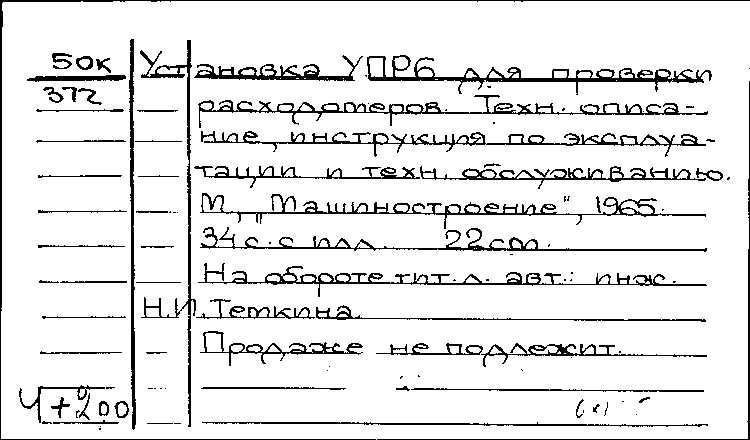 50к Установка УПРБ для проверки
372 расходомеров. Техн. описа-
ние, инструкция по эксплуа-
тации и техн. обслуживанию.
М, „Машиностроение", 1965.
34 с. с илл. 22 cm.
На обороте тит. л. авт.: инж.
Н.И. Темкина.
Продаже не подлежит.
Ч +200